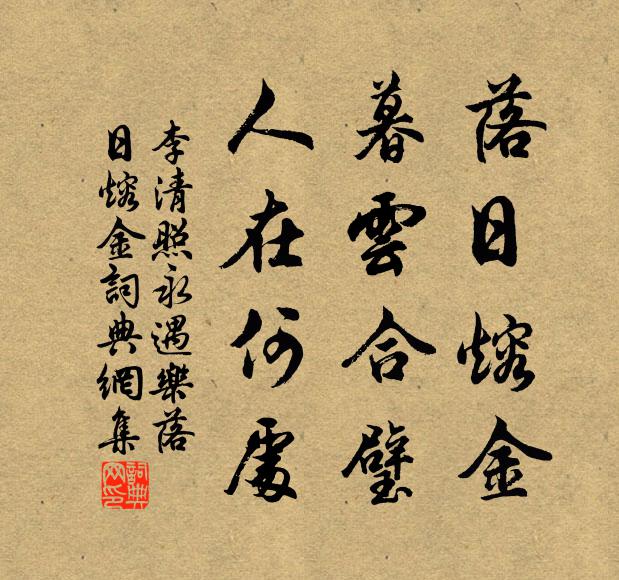 落日熔金
暮雲合璧
人在何處
李清照永遇樂落
日熔金詞典網集
詞典
网印